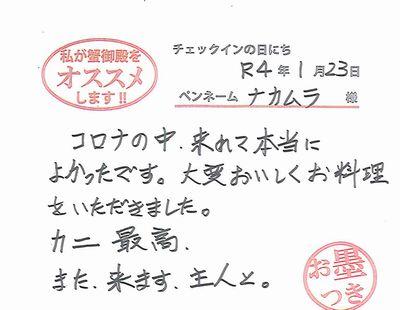 私が蟹御殿を
オススメ
します!!
チェックインの日にち
R4年1月23日
ペンネーム ナカムラ 様
コロナの中、来れて本当に
よかったです。大変おいしくお料理
をいただきました。
カニ 最高、
また、来ます、主人と。
お墨
つき